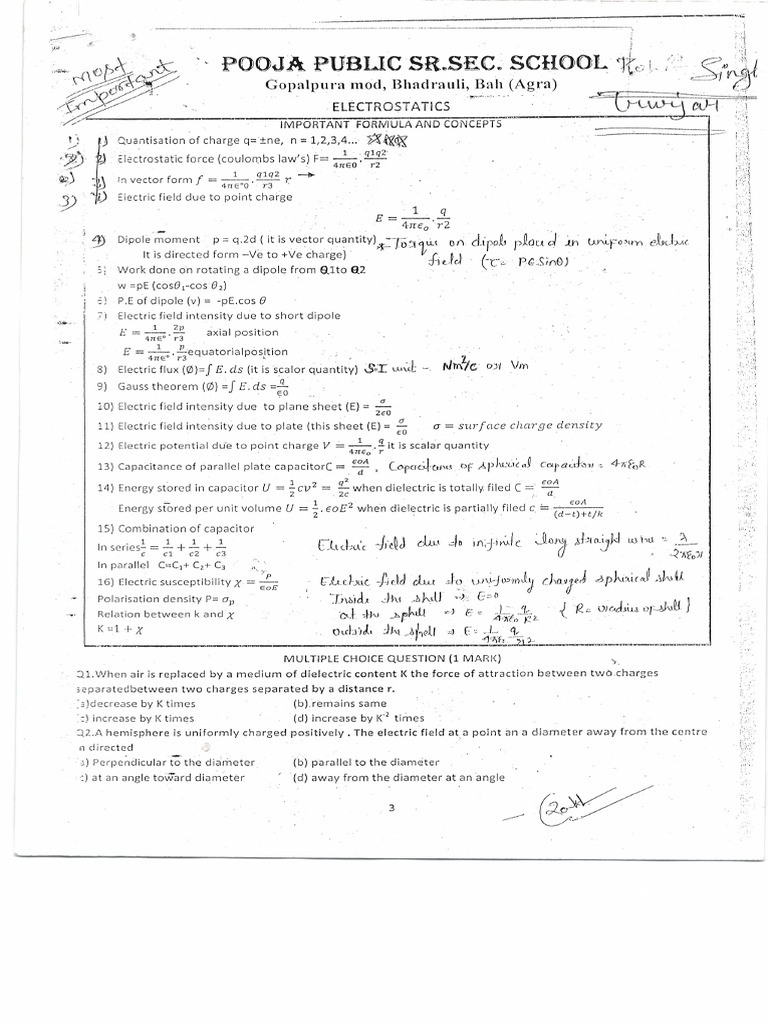 Most
Important
POOJA PUBLIC SR.SEC. SCHOOL
Singh
Gopalpura mod, Bhadrauli, Bah (Agra)
ELECTROSTATICS
IMPORTANT FORMULA AND CONCEPTS
1) Quantisation of charge q= ±ne, n = 1,2,3,4...
2) Electrostatic force (coulombs law's) F= 1/4π∈0 . q1q2/r2
In vector form f = 1/4π∈°0 . q1q2/r3 r →
3) Electric field due to point charge
E = 1/4π∈o . q/r2
4) Dipole moment p = q.2d ( it is vector quantity) * Torque on dipole placed in uniform electric
It is directed form –Ve to +Ve charge) field (τ = PE Sinθ)
5) Work done on rotating a dipole from Θ1to Θ2
w =pE (cosθ₁-cos θ₂)
6) P.E of dipole (v) = -pE.cos θ
7) Electric field intensity due to short dipole
E = 1/4π∈° . 2p/r3 axial position
E = 1/4π∈° . p/r3 equatorialposition
8) Electric flux (Ø)=∫ E. ds (it is scalor quantity) S.I unit – Nm²/c or Vm
9) Gauss theorem (Ø) =∫ E. ds = q/∈0
10) Electric field intensity due to plane sheet (E) = σ/2∈0
11) Electric field intensity due to plate (this sheet (E) = σ/∈0 σ = surface charge density
12) Electric potential due to point charge V = 1/4π∈o . q/r it is scalar quantity
13) Capacitance of parallel plate capacitorC = ∈oA/d , Capacitans of spherical capacitor = 4πε₀R
14) Energy stored in capacitor U = 1/2 cv² = q²/2c when dielectric is totally filed C = ∈oA/d
Energy stored per unit volume U = 1/2 . ∈oE² when dielectric is partially filed c = ∈oA/(d−t)+t/k
15) Combination of capacitor
In series 1/c = 1/c1 + 1/c2 + 1/c3 Electric field due to infinite long straight wire = λ/2πε₀r
In parallel C=C₁+ C₂+ C₃
16) Electric susceptibility χ = p/∈oE Electric field due to uniformly charged spherical shell
Polarisation density P= σp Inside the shell ⇒ E=0
Relation between k and χ at the sphell ⇒ E = 1/4πε₀ q/R² { R= radius of shell }
K =1 + χ outside the shell ⇒ E = 1/4πε₀ q/r²
MULTIPLE CHOICE QUESTION (1 MARK)
Q1.When air is replaced by a medium of dielectric content K the force of attraction between two charges
separatedbetween two charges separated by a distance r.
a)decrease by K times (b).remains same
c) increase by K times (d) increase by K⁻² times
Q2.A hemisphere is uniformly charged positively . The electric field at a point an a diameter away from the centre
n directed
a) Perpendicular to the diameter (b) parallel to the diameter
c) at an angle toward diameter (d) away from the diameter at an angle
3